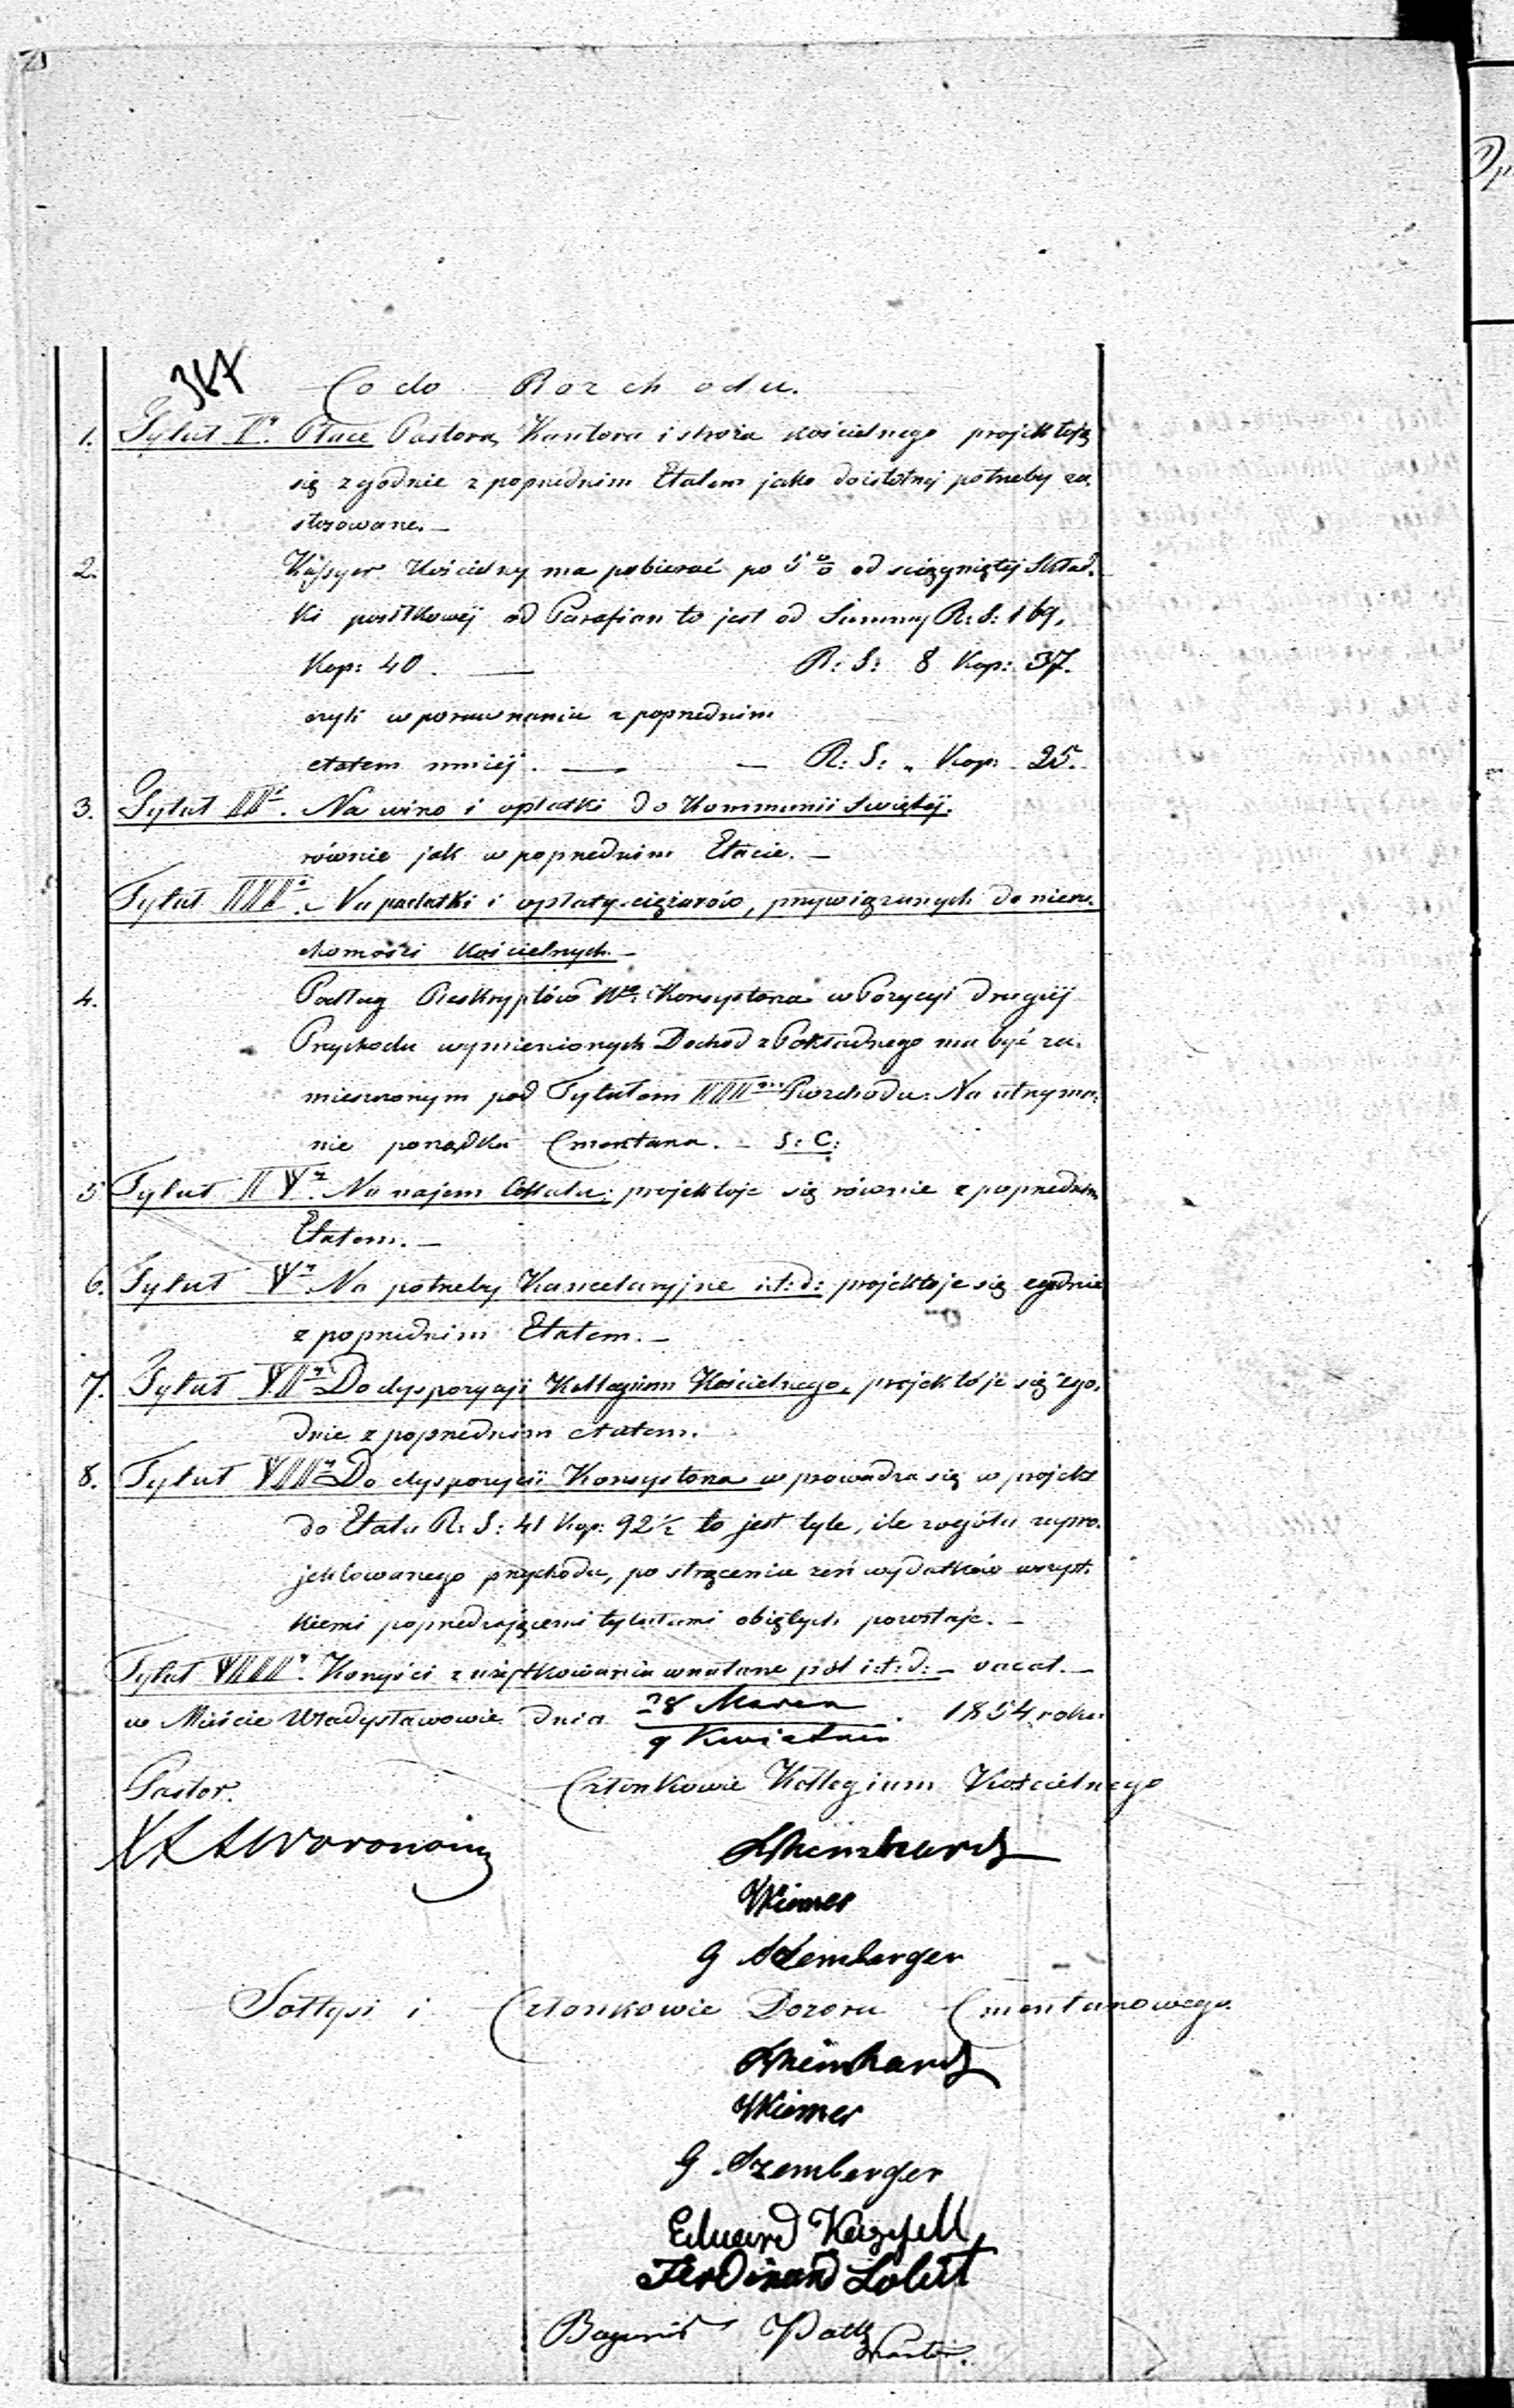 367
Co do Rozchodu.
1. Tytuł Iy. Płace Pastora, Kantora i stróża kościelnego projektują
się zgodnie z poprzednim Etatem jako do istotnej potrzeby za-
stosowane. —
2. Kassyer Kościelny ma pobierać po 5 % od ściągniętej Skład-
ki posiłkowej od Parafian to jest od Summy R: S: 169,
Kop: 40. — R: S: 8 Kop: 37.
czyli w porównaniu z poprzednim
etatem mniej. — — R: S: „ Kop: 25.
3. Tytuł IIi. Na wino i opłatki do Kommunii Swiętej.
równie jak w poprzednim Etacie. —
Tytuł IIIi. Na podatki i opłaty ciężarów, przywiązanych do nieru-
chomości Kościelnych. —
4. Podług Reskryptów Konsystorza w Pozycyi drugiej
Przychodu wymienionych Dochod z Pokładnego ma być za-
mieszczonym pod Tytułem IIIim Rozchodu: Na utrzyma-
nie porządku Cmentarza. — S: C:
5 Tytuł IVy. Na najem Lokalu: projektuje się równie z poprzednim
Etatem. —
6. Tytuł Vy. Na potrzeby Kancelaryjne i:t:d: projektuje się zgodnie
z poprzednim Etatem. —
7. Tytuł VIy Do dyspozycyi Kollegium Kościelnego, projektuje się zgo-
dnie z poprzednim etatem.
8. Tytuł VIIy Do dyspozycii Konsystorza wprowadza się w projekt
do Etatu R: S: 41 Kop: 92½ to jest tyle, ile z ogółu zapro-
jektowanego przychodu, po strąceniu zeń wydatków wszyst-
kiemi poprzedzającemi tytułami objętych pozostaje. —
Tytuł VIIIy. Korzyści z użytkowania w naturze pól i:t:d: — vacat. —
w Mieście Władysławowie dnia 28 Marca . 1854 roku.
9 Kwietnia
Pastor. Członkowie Kollegium Kościelnego
Wiemer
G Szemberger
Sołtysi i Członkowie Dozoru Cmentarnowego.
Wiemer
G. Szemberger
Eduard
Ferdinand